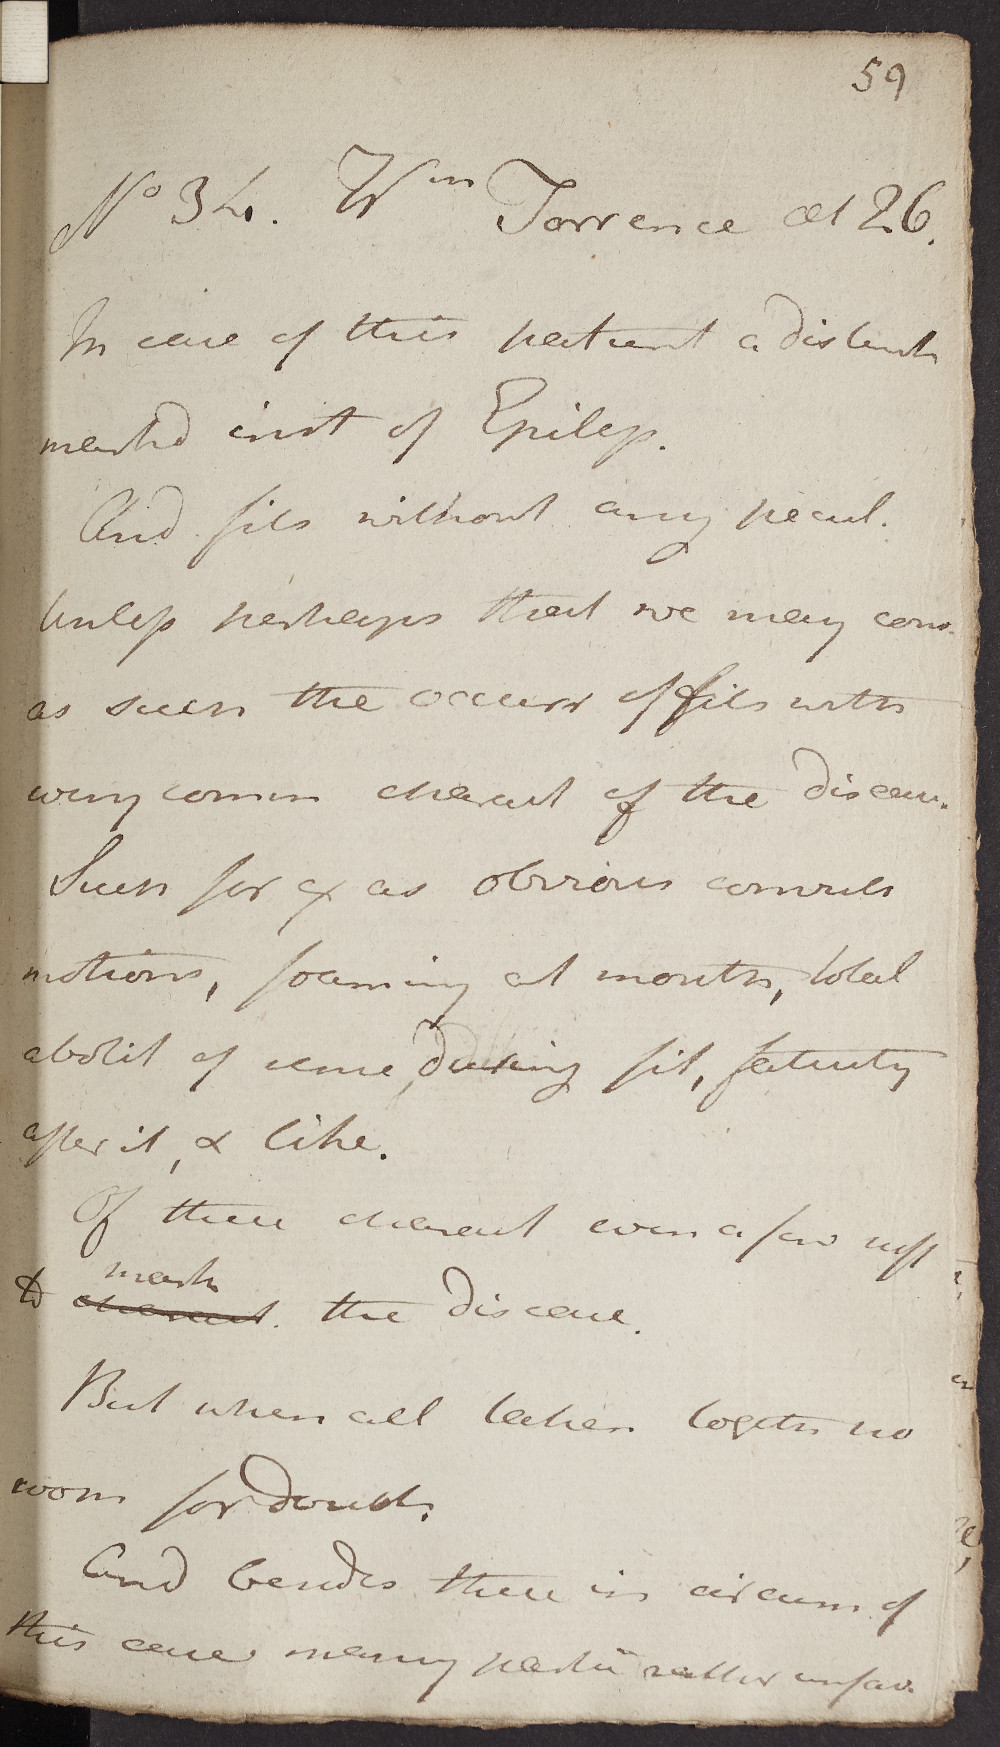 59
No 34. Wm Torrence æt 26.
In case of this patient a distinct
markd inst of Epilep.
And fits without any pecul.
Unless perhaps that we may cons
as such the occurr of fits with
every comm charact of the disease.
Such for ex as obvious convuls
motions, foaming at mouth, total
abolit of sense, during fit, fatuity
after it, & like.
Of these charact even a few suff
mark
to charact. the disease.
But when all taken togeth no
room for doubt.
And besides these in circum of
this case many partic rather unfav.